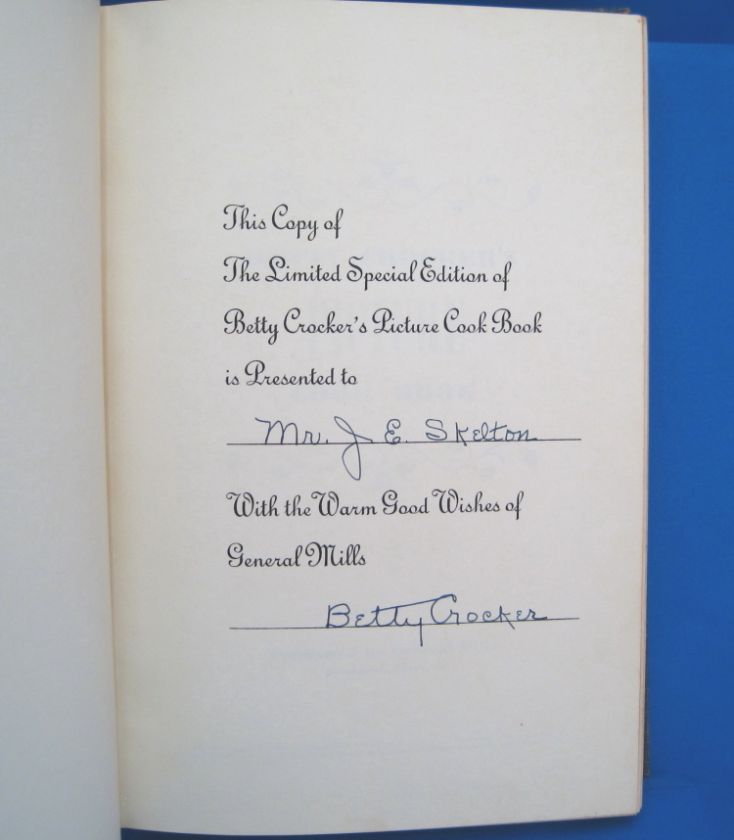 This Copy of
The Limited Special Edition of
Betty Crocker's Picture Cook Book
is Presented to
Mr. J E. Skelton
With the Warm Good Wishes of
General Mills
Betty Crocker